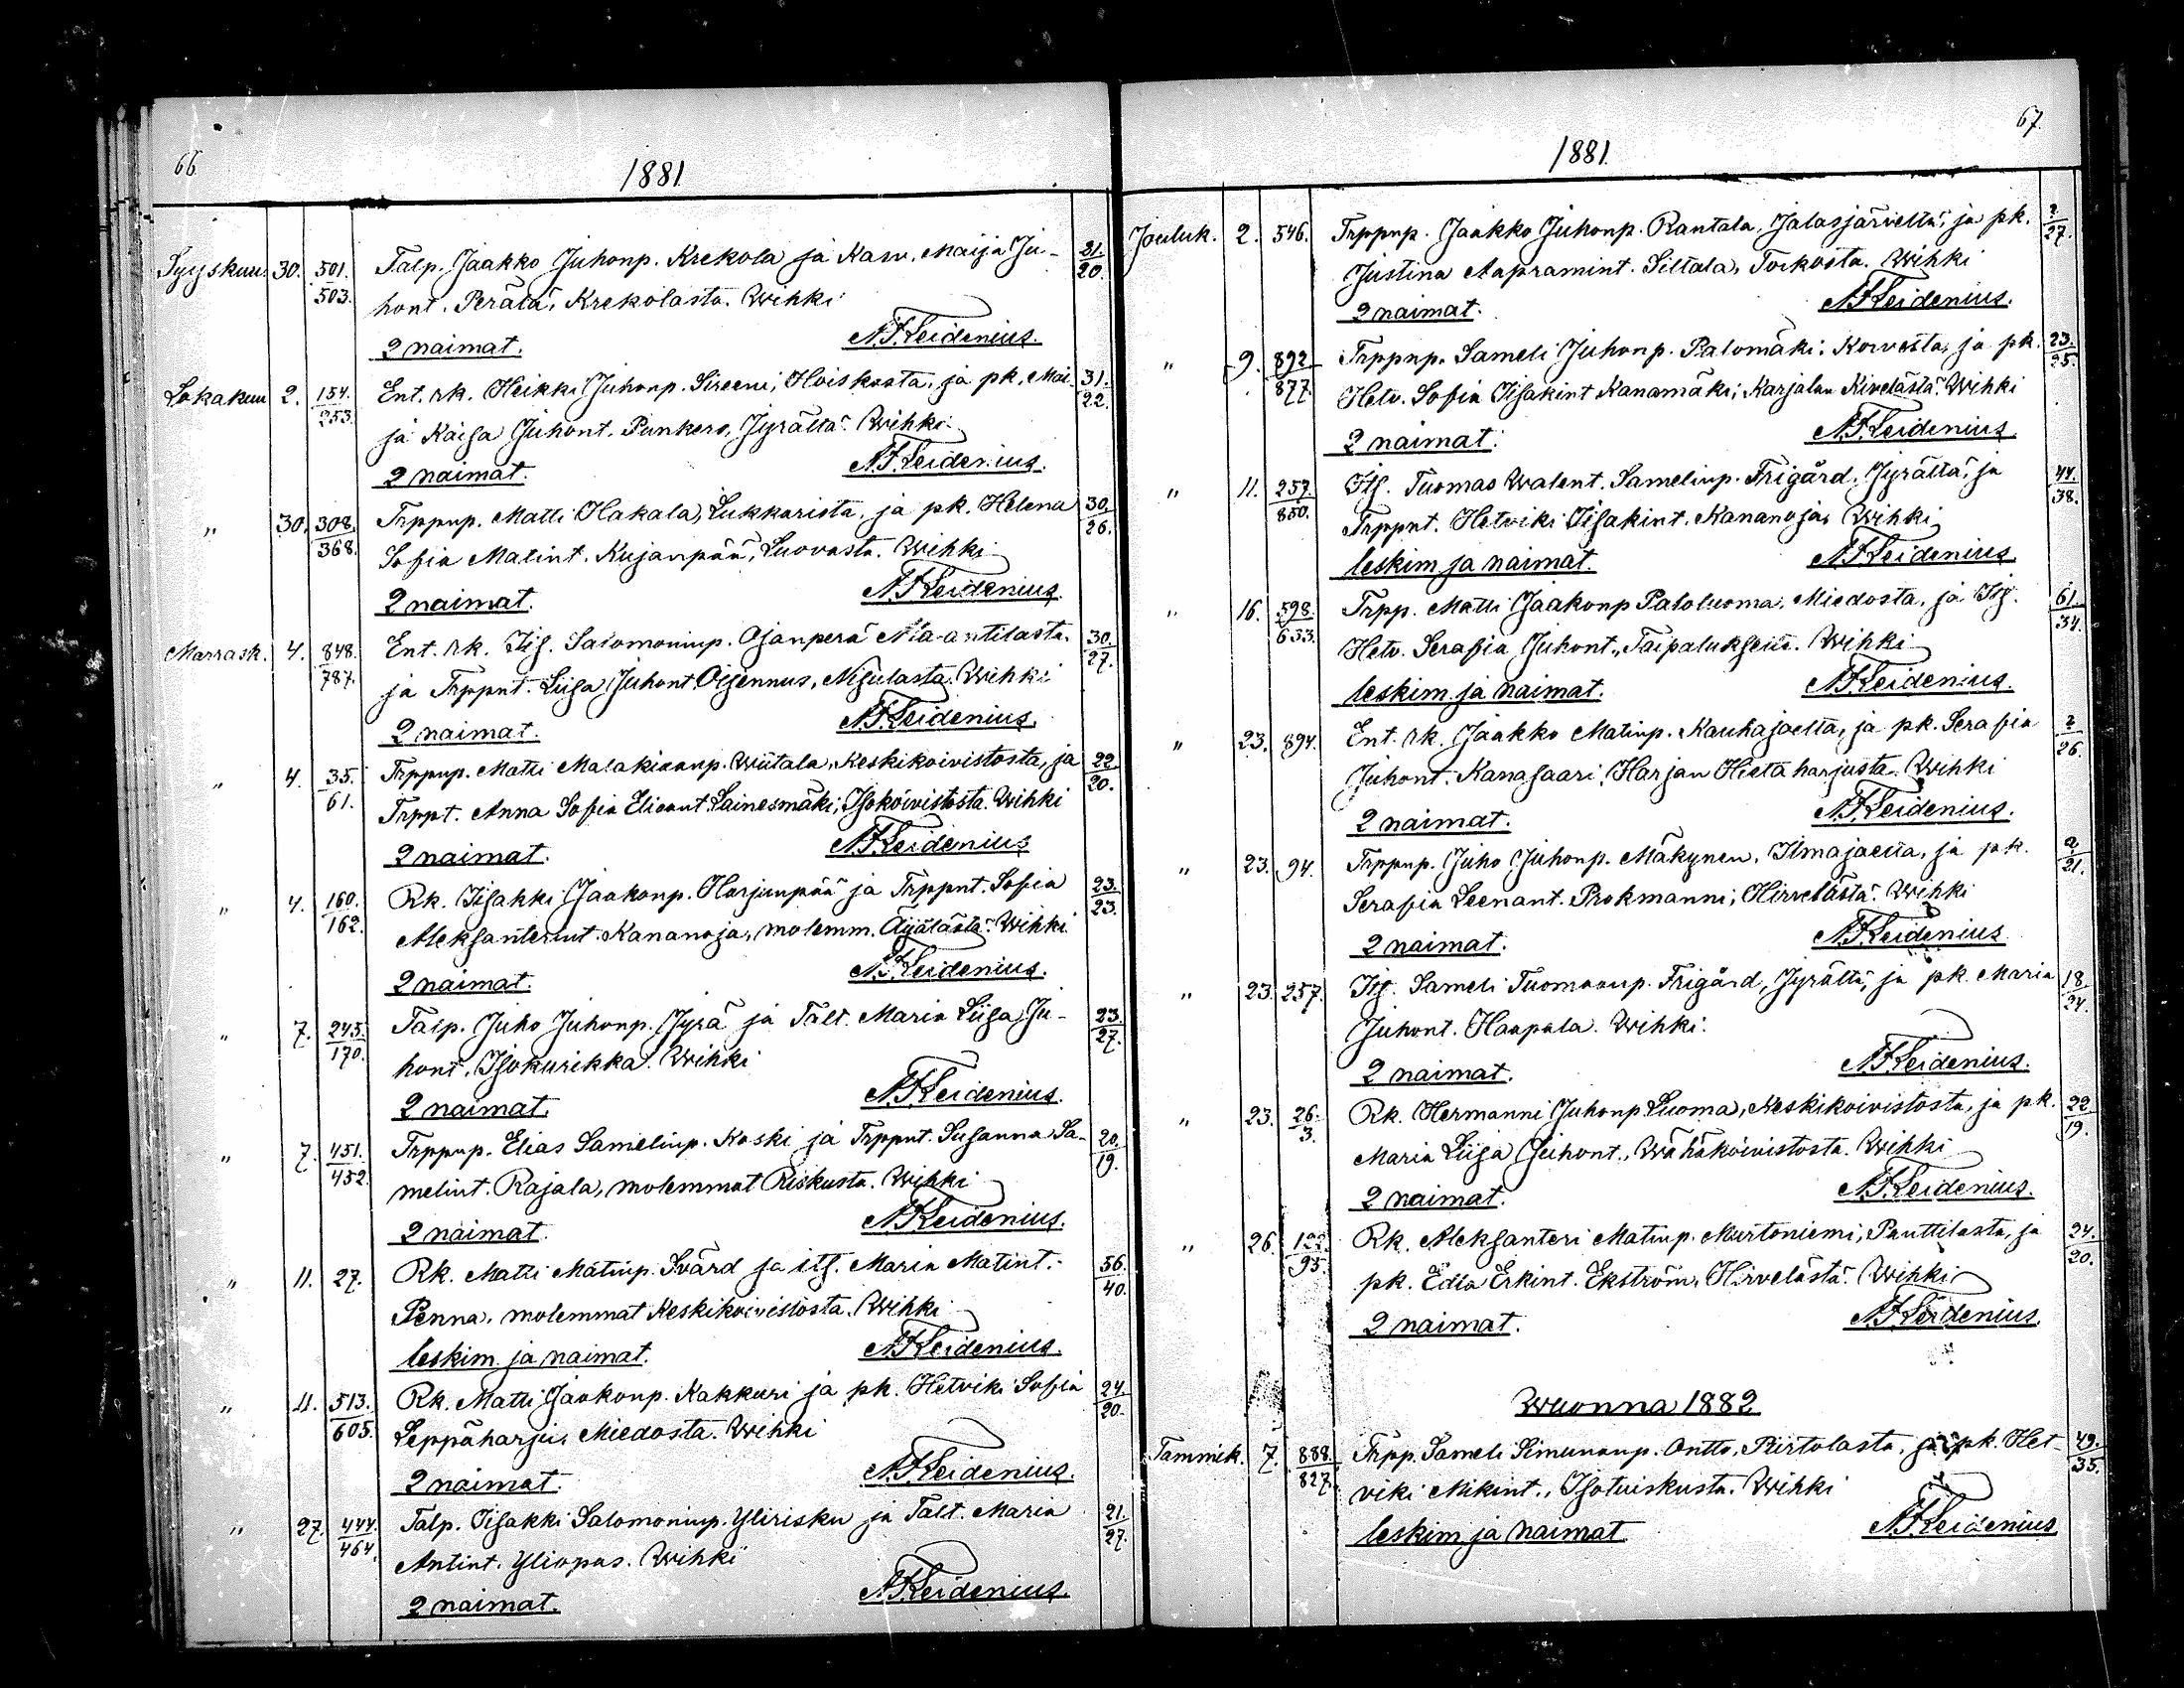 66.
1881
Syyskuu. 30. 501. Talp. Jaakko Juhonp. Krekola ja Kasv. Maija Ju- 21.
503. hont. Perälä, Krekolasta. Wihki 20.
2 naimat. N.F. Leidenius.
Lokakuu 2. 154. Ent. rk. Heikki Juhonp. Sireeni, Hoiskosta, ja pk. Mai- 31.
253. ja Kaisa Juhont. Punkero, Jyrältä. Wihki 22.
2 naimat. N.F. Leidenius.
" 30. 308. Trppnp. Matti Hakala, Lukkarista, ja pk. Helena 30.
368. Sofia Matint. Kujanpää, Luovasta. Wihki 26.
2 naimat. N.F. Leidenius.
Marrask. 4. 848. Ent. rk. Iis. Salomoninp. Ojanperä Ala-antilasta. 30.
787. ja Trppnt. Liisa Juhont. Oijennus, Nisulasta. Wihki 27.
2 naimat. N.F. Leidenius.
" 4. 35. Trppnp. Matti Malakiaanp. Wiitala, Keskikoivistosta, ja 22
61. Trppt. Anna Sofia Eliant. Lainesmäki, Isokoivistosta. Wihki 20.
2 naimat. N.F. Leidenius
" 4. 160. Rk. Iisakki Jaakonp. Harjunpää ja Trppnt. Sofia 23.
162. Aleksanterint. Kananoja, molemm. Äijälästä. Wihki 23.
2 naimat. N.F. Leidenius.
" 7. 245. Talp. Juho Juhonp. Jyrä ja Talt. Maria Liisa Ju- 23.
170. hont. Isokurikka. Wihki 27.
2 naimat. N.F. Leidenius.
" 7. 451. Trppnp. Elias Samelinp. Koski ja Trppnt. Susanna Sa- 20.
452. melint. Rajala, molemmat Riskusta. Wihki 19.
2 naimat. N.F. Leidenius.
" 11. 27. Rk. Matti Matinp. Svärd ja its. Maria Matint. 56.
Penna, molemmat Keskikoivistosta. Wihki 40.
leskim. ja naimat. N.F. Leidenius.
" 11. 513. Rk. Matti Jaakonp. Kakkuri ja pk. Hetviki Sofia 24.
605. Leppäharju, Miedosta. Wihki 20.
2 naimat. N.F. Leidenius.
" 27. 444. Talp. Iisakki Salomoninp. Ylirisku ja Talt. Maria 21.
464. Antint. Yliopas. Wihki 27.
2 naimat. N.F. Leidenius.
67.
1881
Jouluk. 2. 546. Trppnp. Jaakko Juhonp. Rantala, Jalasjärveltä, ja pk. ?
Justina Aapramint. Siltala, Torkosta. Wihki 27.
2 naimat. N.F. Leidenius.
" 9. 892 Trppnp. Sameli Juhonp. Palomäki, Korvesta, ja pk. 23.
877. Hetv. Sofia Iisakint Kanamäki, Karjalan Kivelästä. Wihki 25.
2 naimat. N.F. Leidenius.
" 11. 257. Its. Tuomas Walent. Samelinp. Frigård, Jyrältä, ja 44.
850. Trppnt. Hetviki Iisakint. Kananoja, Wihki 38.
leskim. ja naimat. N.F. Leidenius
" 16. 598. Trpp. Matti Jaakonp Paloluoma, Miedosta, ja Its. 61.
633. Hetv. Serafia Juhont., Wihki 34.
leskim. ja naimat. N.F. Leidenius.
" 23. 894. Ent. rk. Jaakko Matinp. Kauhajaelta, ja pk. Serafia ?
Juhont. Kanasaari, Harjan Hietaharjusta. Wihki 26.
2 naimat. N.F. Leidenius.
" 23. 94. Trppnp. Juho Juhonp. Mäkynen, Ilmajaelta, ja pk. ?
Serafia Leenant. Prokmanni, Hirvelästä. Wihki 21.
2 naimat. N.F. Leidenius
" 23. 257. Its. Sameli Tuomaanp. Frigård, Jyrältä, ja pk. Maria 18.
Juhont. Haapala. Wihki. 24.
2 naimat. N.F. Leidenius.
" 23. 26. Rk. Hermanni Juhonp Luoma, Keskikoivistosta, ja pk. 22
3. Maria Liisa Juhont., Wähäkoivistosta. Wihki 19.
2 naimat. N.F. Leidenius.
" 26. 122. Rk. Aleksanteri Matinp. Murtoniemi, Panttilasta, ja 24.
95. pk. Edla Erkint. Ekström, Hirvelästä. Wihki 20.
2 naimat. N.F. Leidenius.
Wuonna 1882
Tammik. 7. 888. Trpp. Sameli Simunanp. Ontto, Piirtolasta, ja pk. Het- 49.
827. viki Mikint., Isotuiskusta. Wihki 35.
leskim. ja naimat N.F. Leidenius